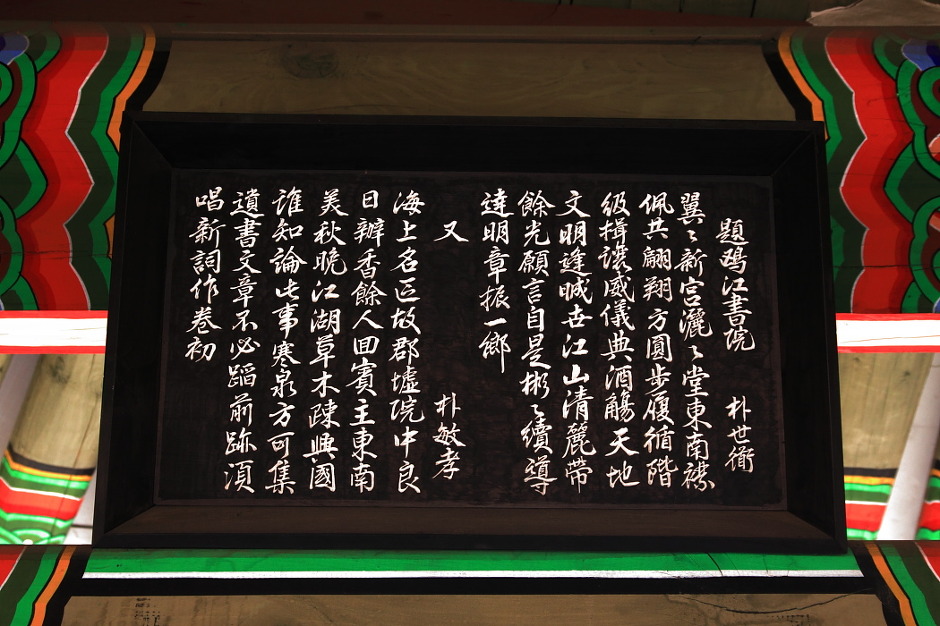 題鷗江書院 朴世衕
翼〻新宮灑〻堂東南襟
佩共翩翔方圓步履循階
級揖讓威儀典酒觴天地
文明逢晠世江山清麗帶
餘光願言自是彬〻續導
達明章振一鄉
又 朴敏孝
海上名區故郡墟院中良
日辦香餘人回賓主東南
美秋晩江湖草木疎與國
誰知論此事寒泉方可集
遺書文章不必蹈前跡須
唱新詞作卷初